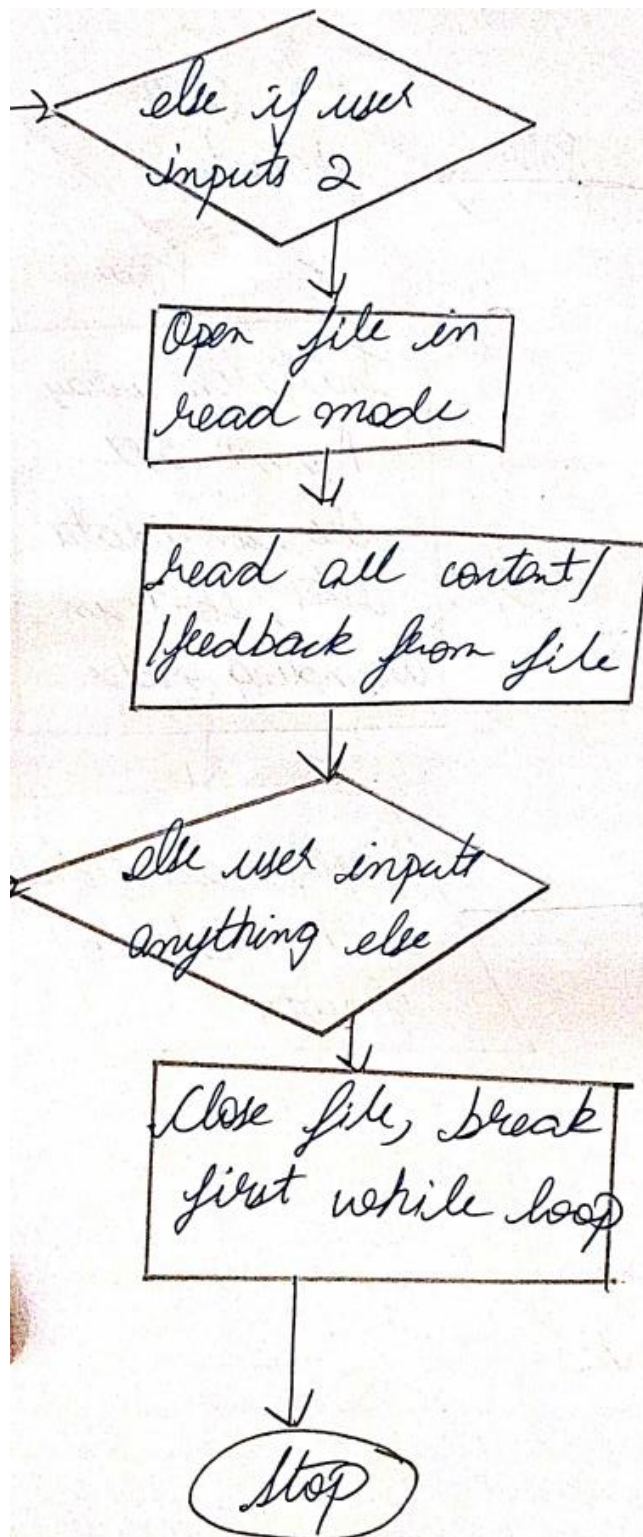 else if user
inputs 2
Open file in
read mode
read all content/
/feedback from file
else user inputs
anything else
Close file, break
first while loop
Stop